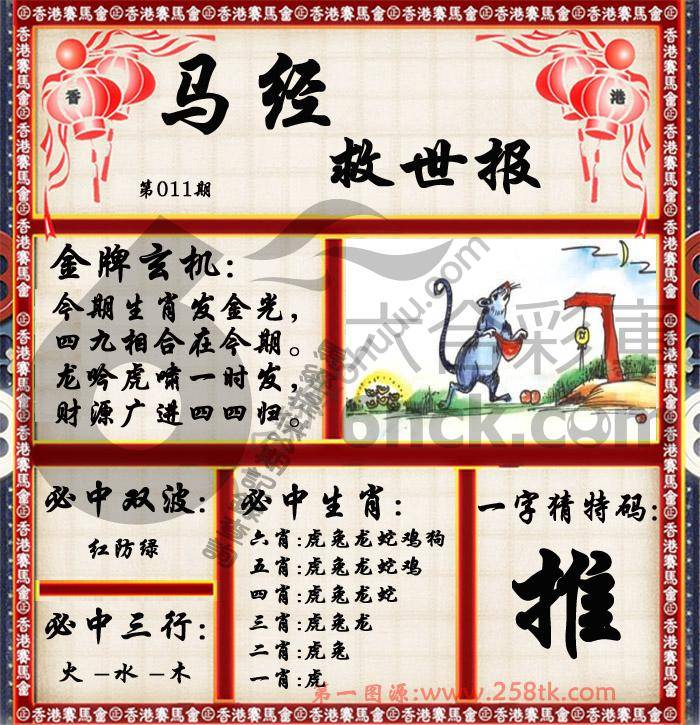 香港賽馬會
香 港
马经
救世报
第011期
金牌玄机:
今期生肖发金光，
四九相合在今期。
龙吟虎啸一时发，
财源广进四四归。
六合彩庫
6hck.com
必中双波:
红防绿
必中三行:
火-水-木
必中生肖:
六肖:虎兔龙蛇鸡狗
五肖:虎兔龙蛇鸡
四肖:虎兔龙蛇
三肖:虎兔龙
二肖:虎兔
一肖:虎
一字猜特码:
推
第一图源:www.258tk.com